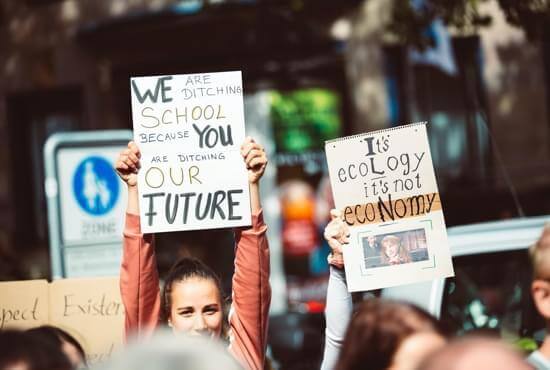 WE ARE
DITCHING
SCHOOL
BECAUSE YOU
ARE DITCHING
OUR
FUTURE
It's
ecoLogy
it's not
ecoNomy
ZONE
pect
Existen
pect